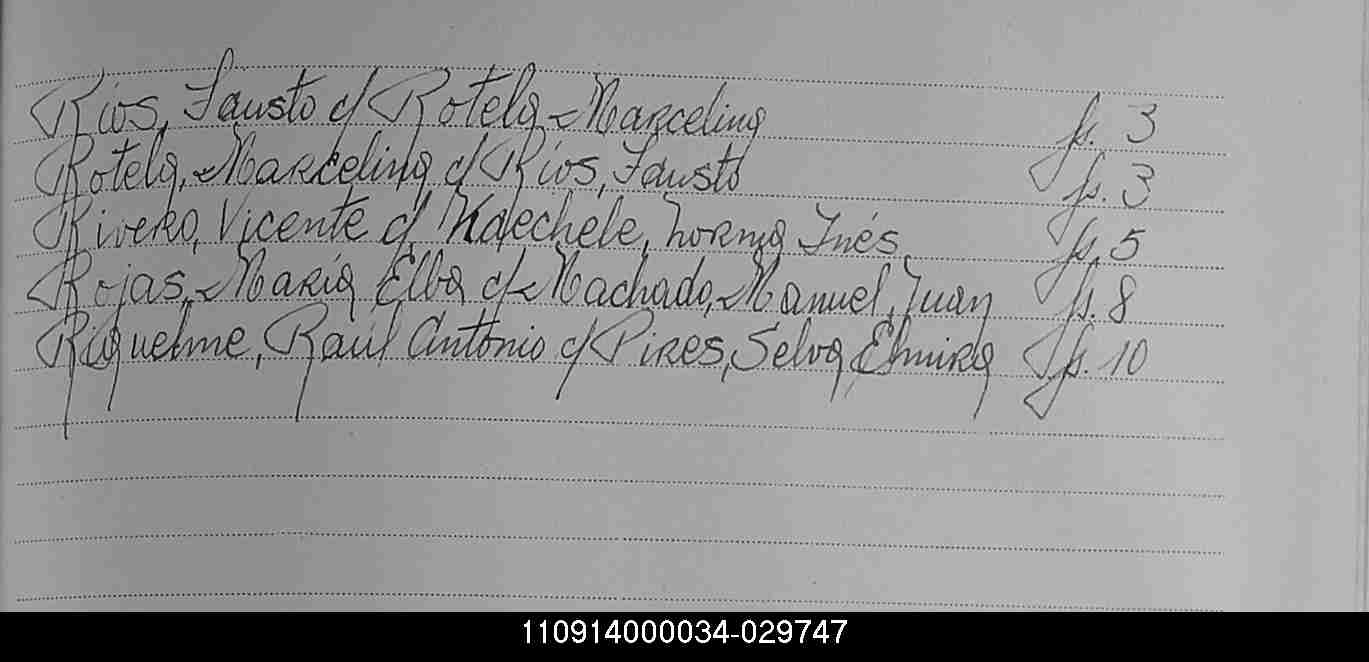 Ríos, Fausto c/ Rotela Marcelina fs. 3
Rotela, Marcelina c/ Ríos, Fausto fs. 3
Rivero, Vicente c/ Kaechele, Norma Inés fs. 5
Rojas, María Elba c/ Machado, Manuel Juan fs. 8
Riquelme, Raúl Antonio c/ Pires, Selva Elmira fs. 10
110914000034-029747